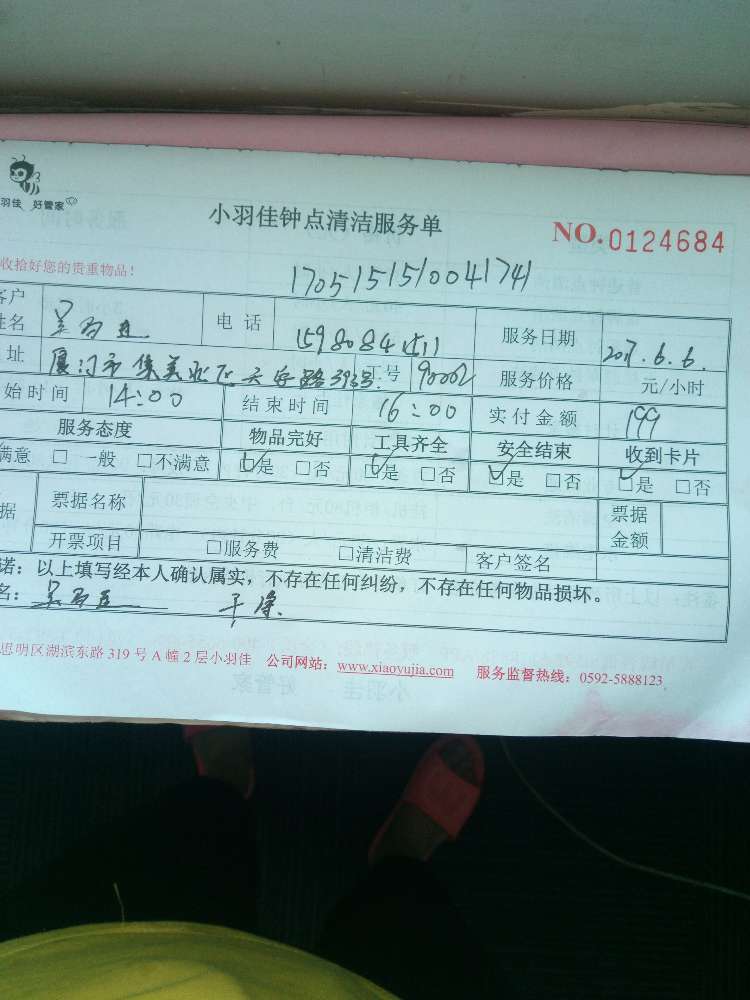 羽佳 好管家
小羽佳钟点清洁服务单
NO.0124684
收拾好您的贵重物品!
170515151004 1741
客户姓名 电话 服务日期 2017.6.6.
址 厦门市集美 天安路393号 工号 90002 服务价格 元/小时
始时间 14:00 结束时间 16:00 实付金额 199
服务态度 物品完好 工具齐全 安全结束 收到卡片
满意 □ 一般 □不满意 ☑是 □否 ☑是 □否 ☑是 □否 ☑是 □否
据 票据名称 票据金额
开票项目 □服务费 □清洁费 客户签名
诺:以上填写经本人确认属实,不存在任何纠纷,不存在任何物品损坏。
名: 干净.
思明区湖滨东路 319 号 A 幢 2 层小羽佳 公司网站:www.xiaoyujia.com 服务监督热线:0592-5888123